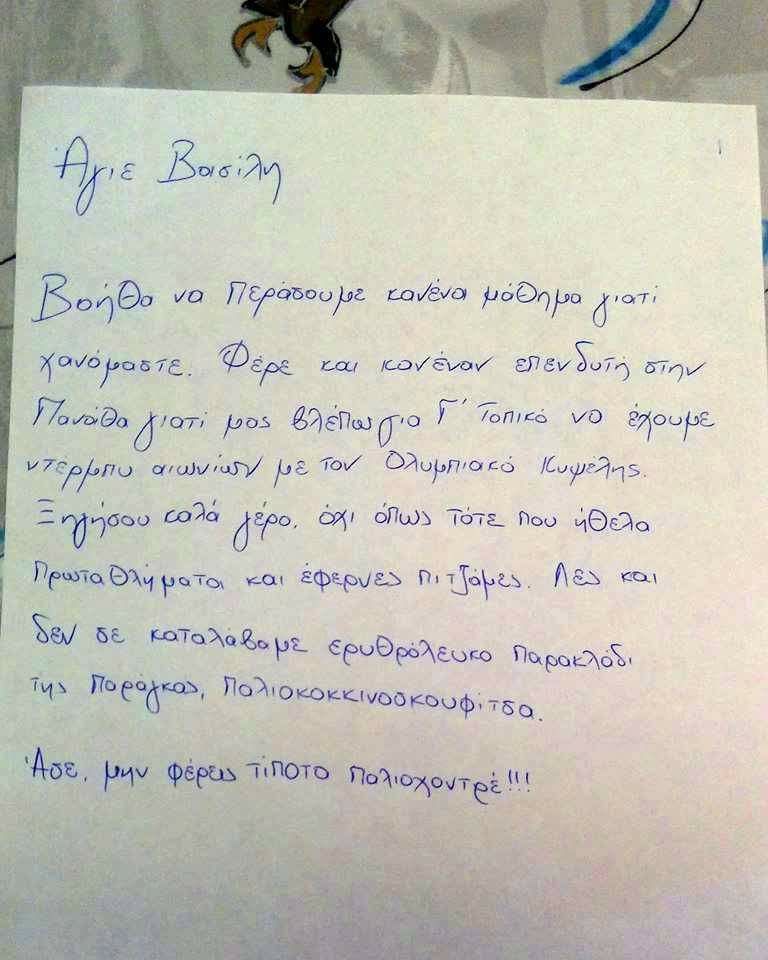 Άγιε Βασίλη
Βοήθα να περάσουμε κανένα μάθημα γιατί
χανόμαστε. Φέρε και κανέναν επενδυτή στην
Πανάθα γιατί μας βλέπω για Γ' τοπικό να έχουμε
ντερμπυ αιωνίων με τον Ολυμπιακό Κυψέλης.
Ξηγήσου καλά γέρο, όχι όπως τότε που ήθελα
πρωταθλήματα και έφερνες πιτζάμες. Λες και
δεν σε καταλάβαμε ερυθρόλευκο παρακλάδι
της παράγκας, παλιοκοκκινοσκουφίτσα.
Άσε, μην φέρεις τίποτα παλιοχοντρέ!!!